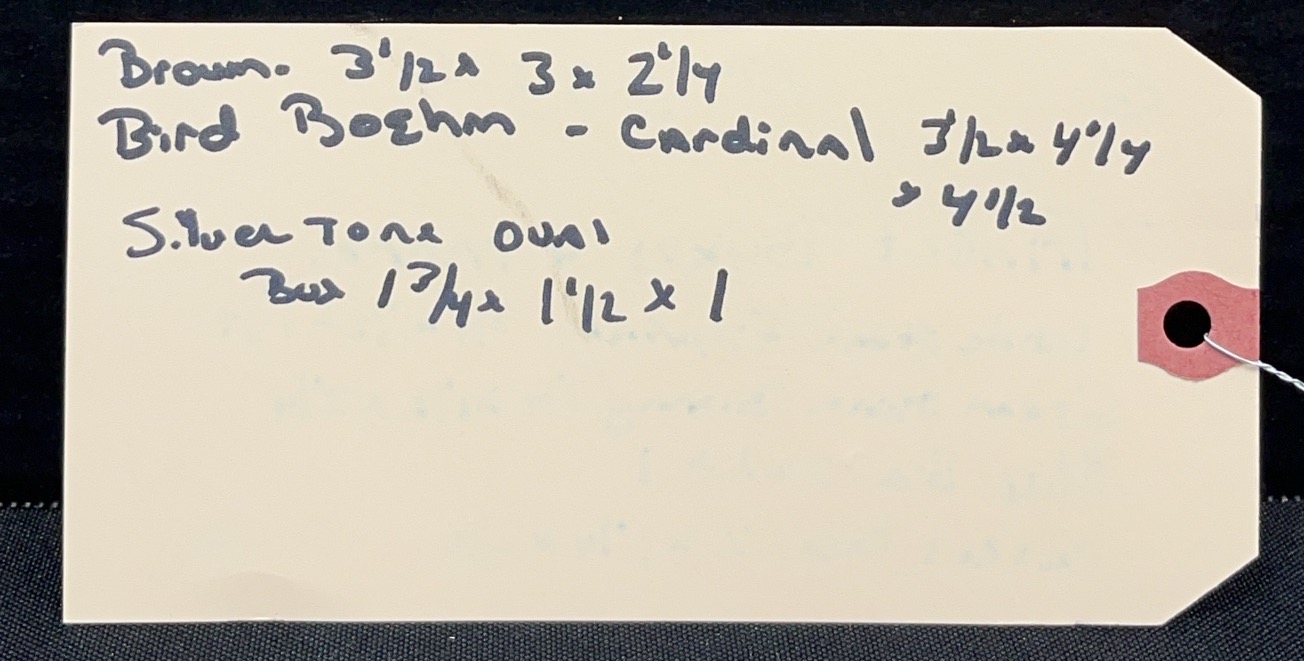 Brown. 3 1/2 x 3 x 2 1/4
Bird Boehm - Cardinal 3 1/2 x 4 1/4
x 4 1/2
Silver Tone oval
Box 1 3/4 x 1 1/2 x 1